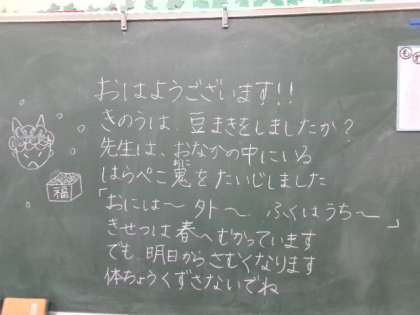 おはようございます!!
きのうは、豆まきをしましたか?
先生は、おなかの中にいる
はらぺこ鬼をたいじしました
おに
「おには〜 外〜 ふくはうち〜」
きせつは春へむかっています
でも、明日からさむくなります
体ちょうくずさないでね
福